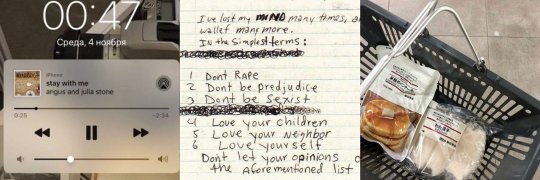 00:47
Среда, 4 ноября
iPhone
stay with me
angus and julia stone
0:25
−2:34
I've lost my MIND many times, a
wallet many more.
In the simplest terms:
1 Dont RAPE
2 Dont be predjudice
3 Dont be sexist
4 Love your children
5 Love your neighbor
6 Love yourself
Dont let your opinions o
the aforementioned list